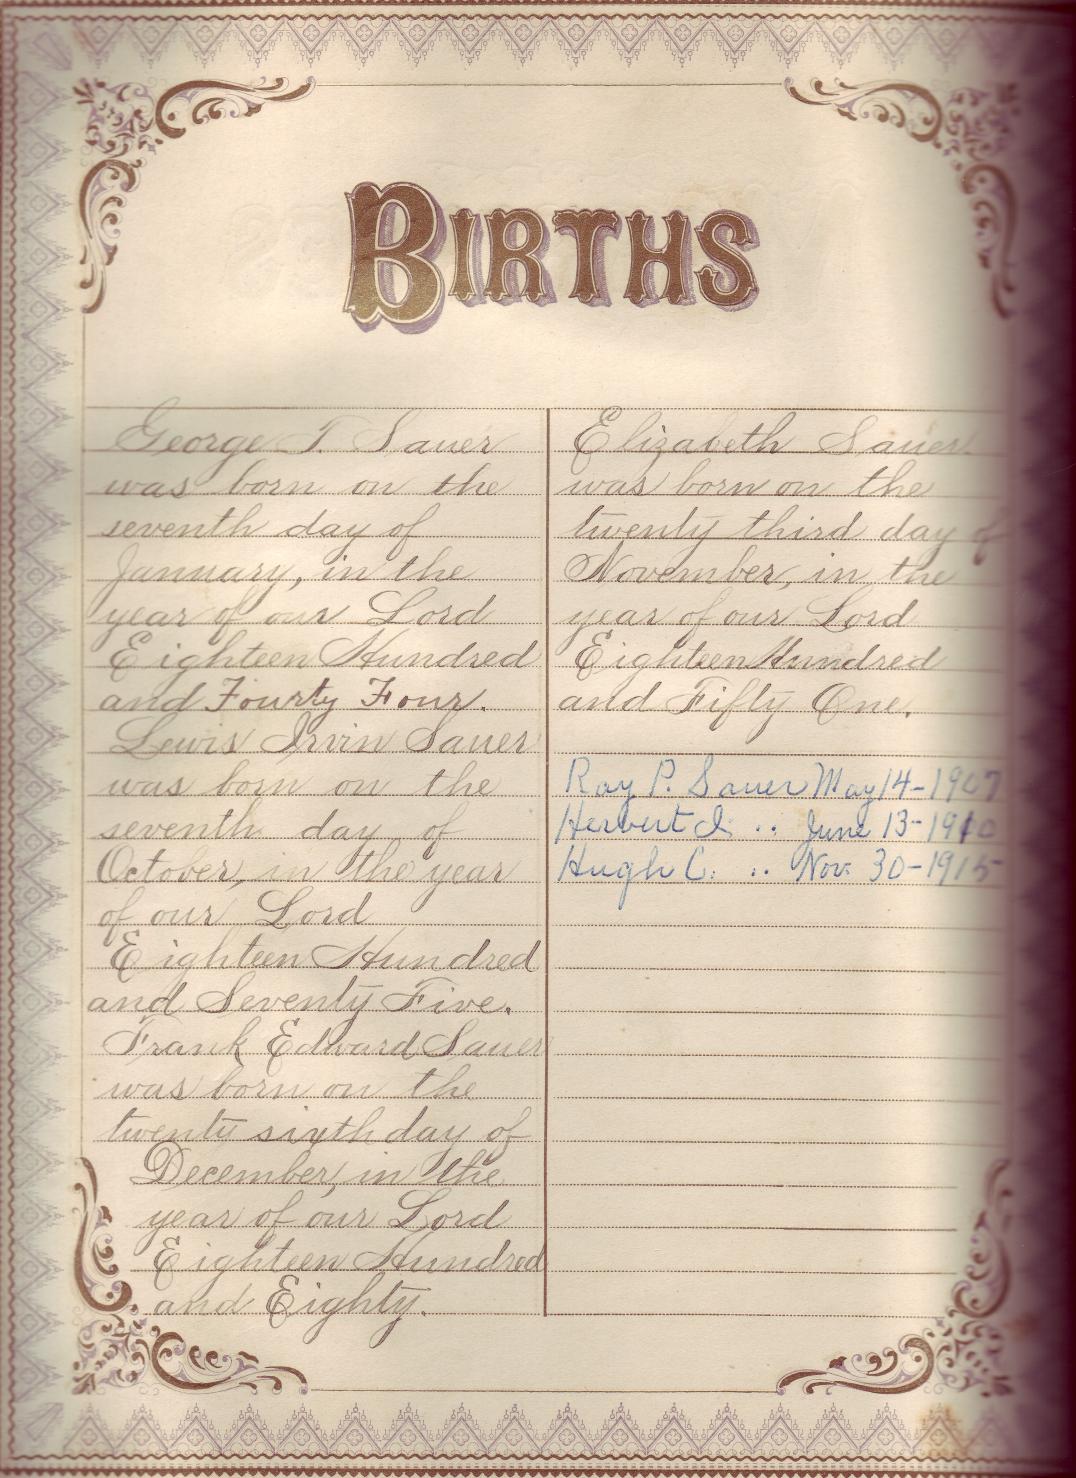 BIRTHS
George P. Sauer
was born on the
seventh day of
January, in the
year of our Lord
Eighteen Hundred
and Fourty Four.
Lewis Irvin Sauer
was born on the
seventh day of
October, in the year
of our Lord
Eighteen Hundred
and Seventy Five.
Frank Edward Sauer
was born on the
twenty sixth day of
December, in the
year of our Lord
Eighteen Hundred
and Eighty.
Elizabeth Sauer.
was born on the
twenty third day of
November, in the
year of our Lord
Eighteen Hundred
and Fifty One.
Ray P. Sauer May 14-1907
Herbert I. .. June 13-1910
Hugh C. .. Nov. 30-1915